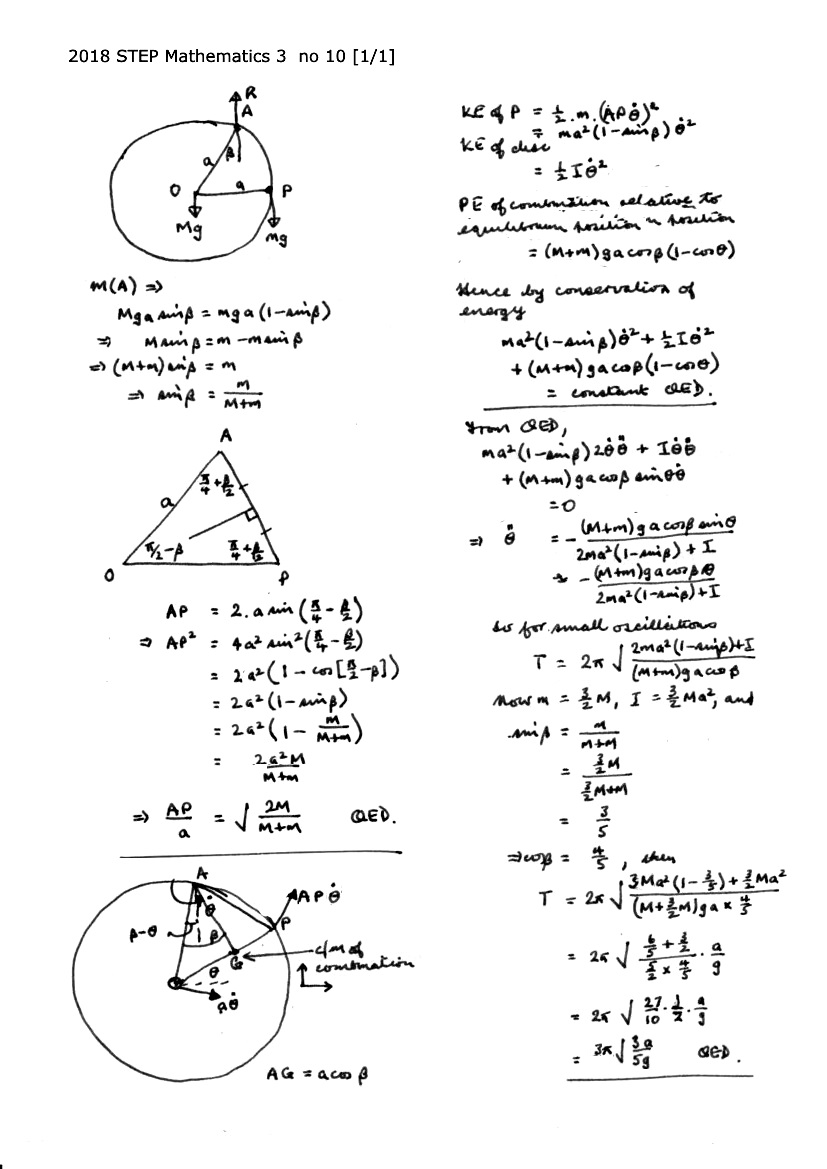 2018 STEP Mathematics 3 no 10 [1/1]
R
A
β
a
O
a
P
Mg
mg
M(A) ⇒
Mga sinβ = mga(1-sinβ)
⇒ Msinβ = m - msinβ
⇒ (M+m)sinβ = m
⇒ sinβ = m/(M+m)
A
π/4 + β/2
a
π/2 - β
π/4 + β/2
O
P
AP = 2.a sin(π/4 - β/2)
⇒ AP² = 4a² sin²(π/4 - β/2)
= 2a²(1 - cos[π/2 - β])
= 2a²(1 - sinβ)
= 2a²(1 - m/(M+m))
= 2a²M/(M+m)
⇒ AP/a = √(2M/(M+m)) QED.
A
APθ̇
θ̇
P
β-θ
β
G
c/m of
combination
θ
aθ̇
AG = a cosβ
KE of P = ½.m.(APθ̇)²
= ma²(1-sinβ)θ̇²
KE of disc
= ½Iθ̇²
PE of combination relative to
equilibrium position in position
= (M+m)ga cosβ(1-cosθ)
Hence by conservation of
energy
ma²(1-sinβ)θ̇² + ½Iθ̇²
+ (M+m)gacosβ(1-cosθ)
= constant QED.
From QED,
ma²(1-sinβ)2θ̇θ̈ + Iθ̇θ̈
+ (M+m)gacosβ sinθθ̇
=0
⇒ θ̈ = -(M+m)gacosβsinθ/(2ma²(1-sinβ)+I)
≈ -(M+m)gacosβθ/(2ma²(1-sinβ)+I)
So for small oscillations
T = 2π√((2ma²(1-sinβ)+I)/((M+m)gacosβ))
Now m = 3/2 M, I = 3/2 Ma², and
sinβ = m/(m+M)
= (3/2 M)/(3/2 M+M)
= 3/5
⇒ cosβ = 4/5, then
T = 2π√((3Ma²(1-3/5)+3/2 Ma²)/((M+3/2 M)ga×4/5))
= 2π√((6/5+3/2)/(5/2×4/5)·a/g)
= 2π√(27/10·1/2·a/g)
= 3π√(3a/5g) QED.